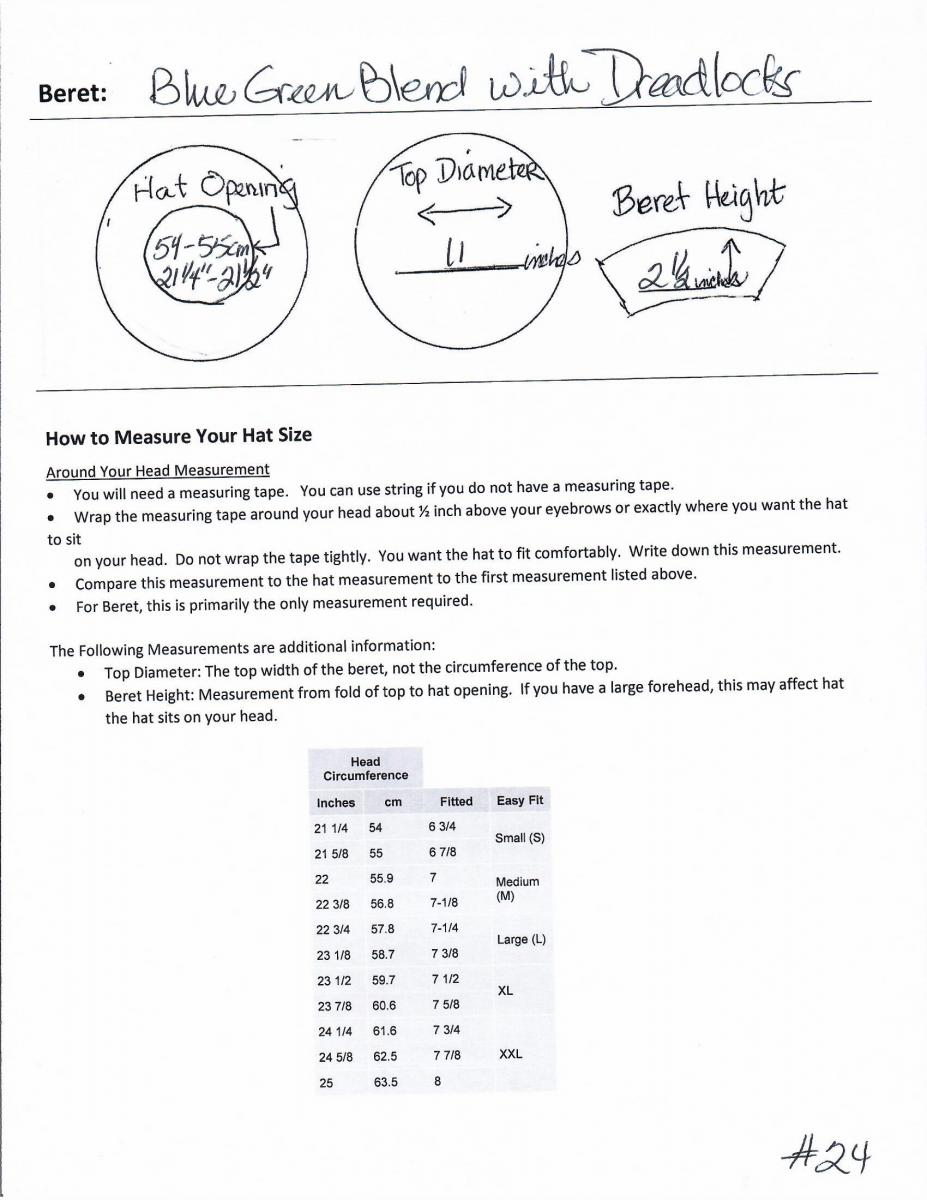 Beret: Blue Green Blend with Dreadlocks
Hat Opening
54-55cm
21 1/4"-21 1/2"
Top Diameter
11 inches
Beret Height
2 1/2 inches
How to Measure Your Hat Size
Around Your Head Measurement
• You will need a measuring tape. You can use string if you do not have a measuring tape.
• Wrap the measuring tape around your head about ½ inch above your eyebrows or exactly where you want the hat
to sit
on your head. Do not wrap the tape tightly. You want the hat to fit comfortably. Write down this measurement.
• Compare this measurement to the hat measurement to the first measurement listed above.
• For Beret, this is primarily the only measurement required.
The Following Measurements are additional information:
• Top Diameter: The top width of the beret, not the circumference of the top.
• Beret Height: Measurement from fold of top to hat opening. If you have a large forehead, this may affect hat
the hat sits on your head.
Head
Circumference
Inches cm Fitted Easy Fit
21 1/4 54 6 3/4
Small (S)
21 5/8 55 6 7/8
22 55.9 7
Medium
(M)
22 3/8 56.8 7-1/8
22 3/4 57.8 7-1/4
Large (L)
23 1/8 58.7 7 3/8
23 1/2 59.7 7 1/2
XL
23 7/8 60.6 7 5/8
24 1/4 61.6 7 3/4
24 5/8 62.5 7 7/8 XXL
25 63.5 8
#24